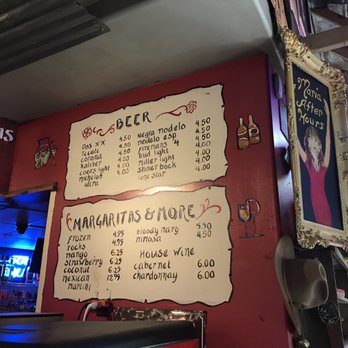 BEER
Dos XX 4.50
Tecate 4.50
corona 4.50
kaliber 4.50
coors light 4.00
michelob 4.00
ultra
negra modelo 4.50
modelo esp 4.50
firemans 4 4.50
bud light 4.00
Miller light 4.00
Shiner bock 4.00
lone star 4.00
MARGARITAS & MORE
frozen 4.95
rocks 4.95
mango 6.25
strawberry 6.25
coconut 6.25
mexican 12.99
martini
bloody mary 5.50
mimosa 4.50
HOUSE WINE
cabernet 6.00
chardonnay 6.00
Maria
After
Hours